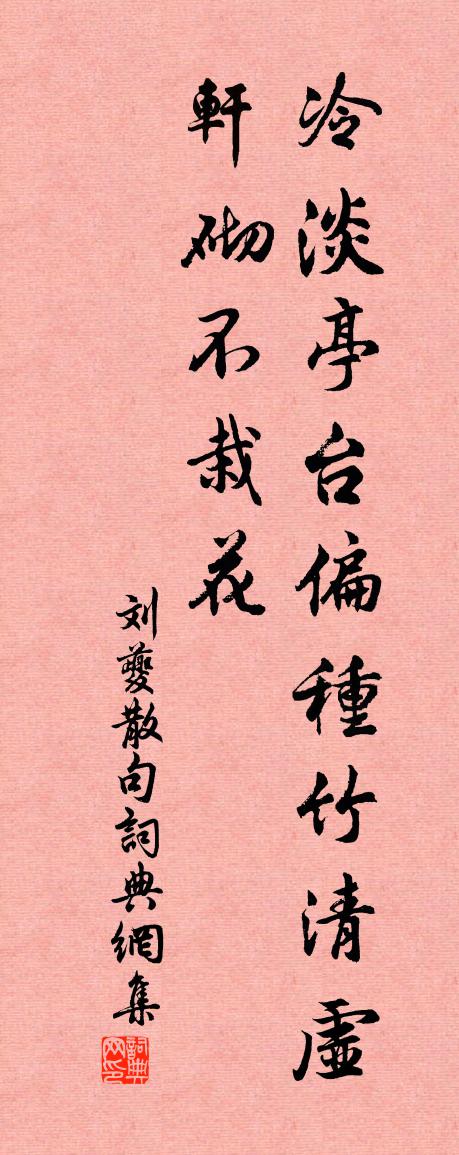 冷淡亭台偏種竹清虛
軒砌不栽花
刘夔散句詞典網集
詞典网印